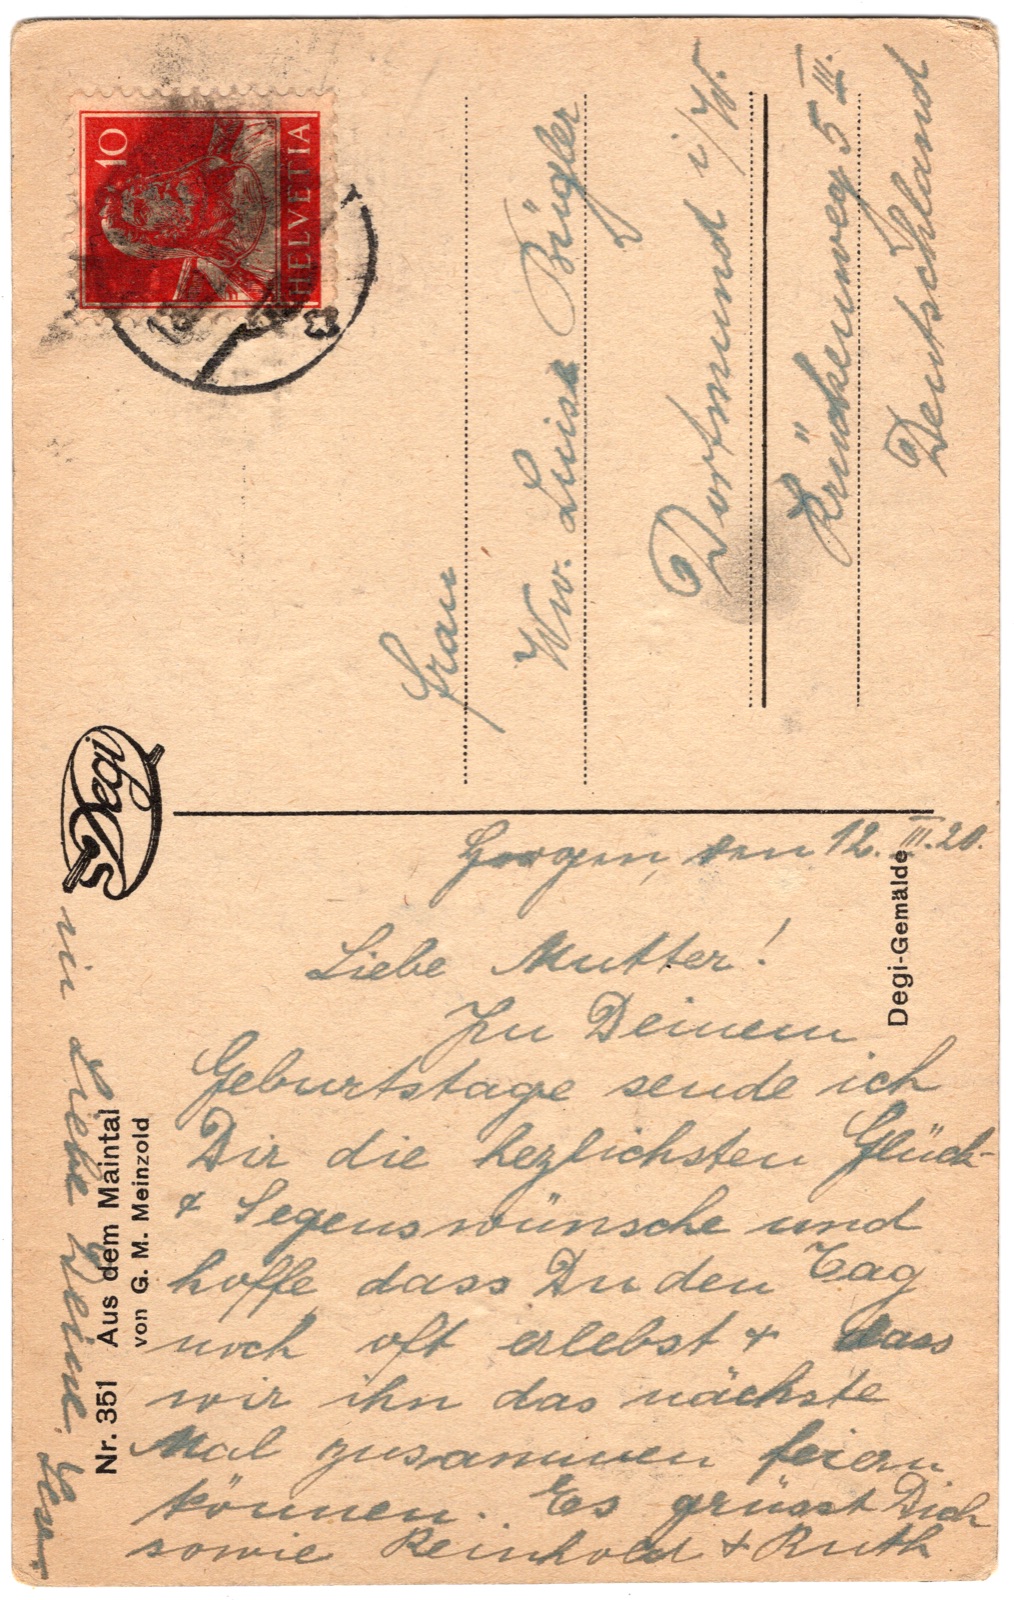 10
HELVETIA
Frau
Ww. Luise Bügler
Dortmund i/W.
Krückenweg 5 III.
Deutschland
Degi
Nr. 351 Aus dem Maintal
von G. M. Meinzold
Degi-Gemälde
den 12. III. 20.
Liebe Mutter!
Zu Deinem
Geburtstage sende ich
Dir die hezlichsten Glück-
+ Segenswünsche und
hoffe dass Du den Tag
noch oft erlebst + dass
wir ihn das nächste
Mal zusammen feiern
können. Es grüsst Dich
sowie Reinhold + Ruth
in Liebe Deine